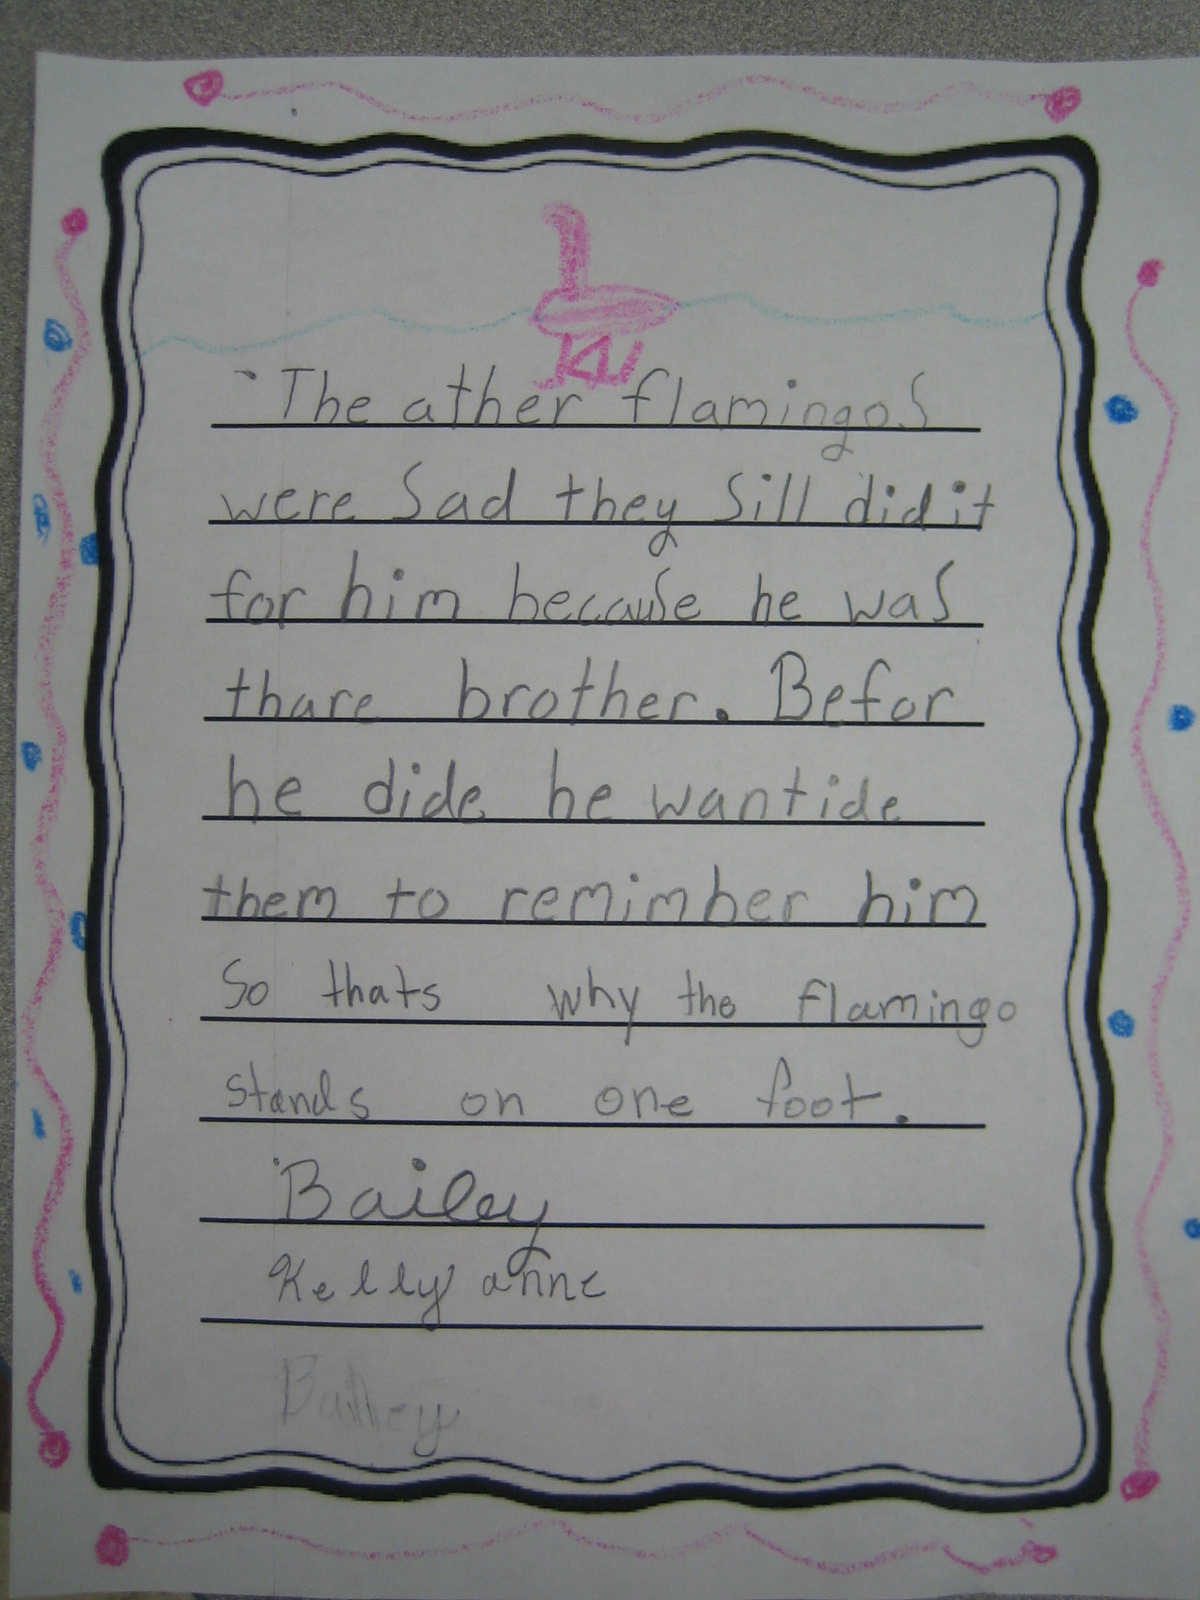 The ather flamingos
were Sad they Sill did it
for him because he was
thare brother. Befor
he dide he wantide
them to remimber him
So thats why the flamingo
stands on one foot.
Bailey
Kelly anne
Bailey